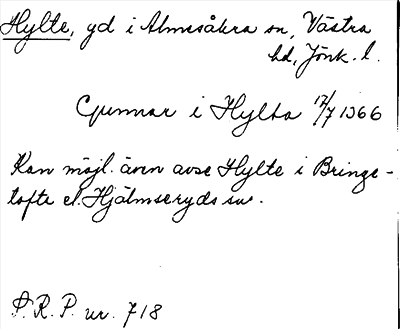 Hylte, gd i Almesåkra sn, Västra
hd, Jönk. l.
Gunnar i Hylta 12/7 1366
Kan möjl. även avse Hylte i Bringe-
tofta el. Hjälmseryds sn.
S. R. P. nr. 718